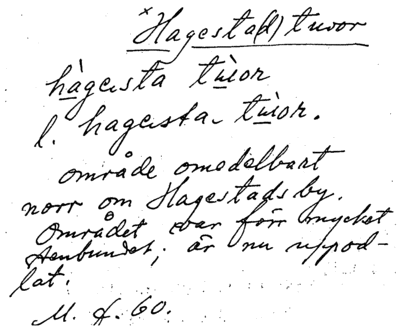 × Hagesta(d) tuvor
hàgesta tùor
l. hagesta tùor.
område omedelbart
norr om Hagestads by.
Området var förr mycket
stenbundet; är nu uppod-
lat.
M. f. 60.